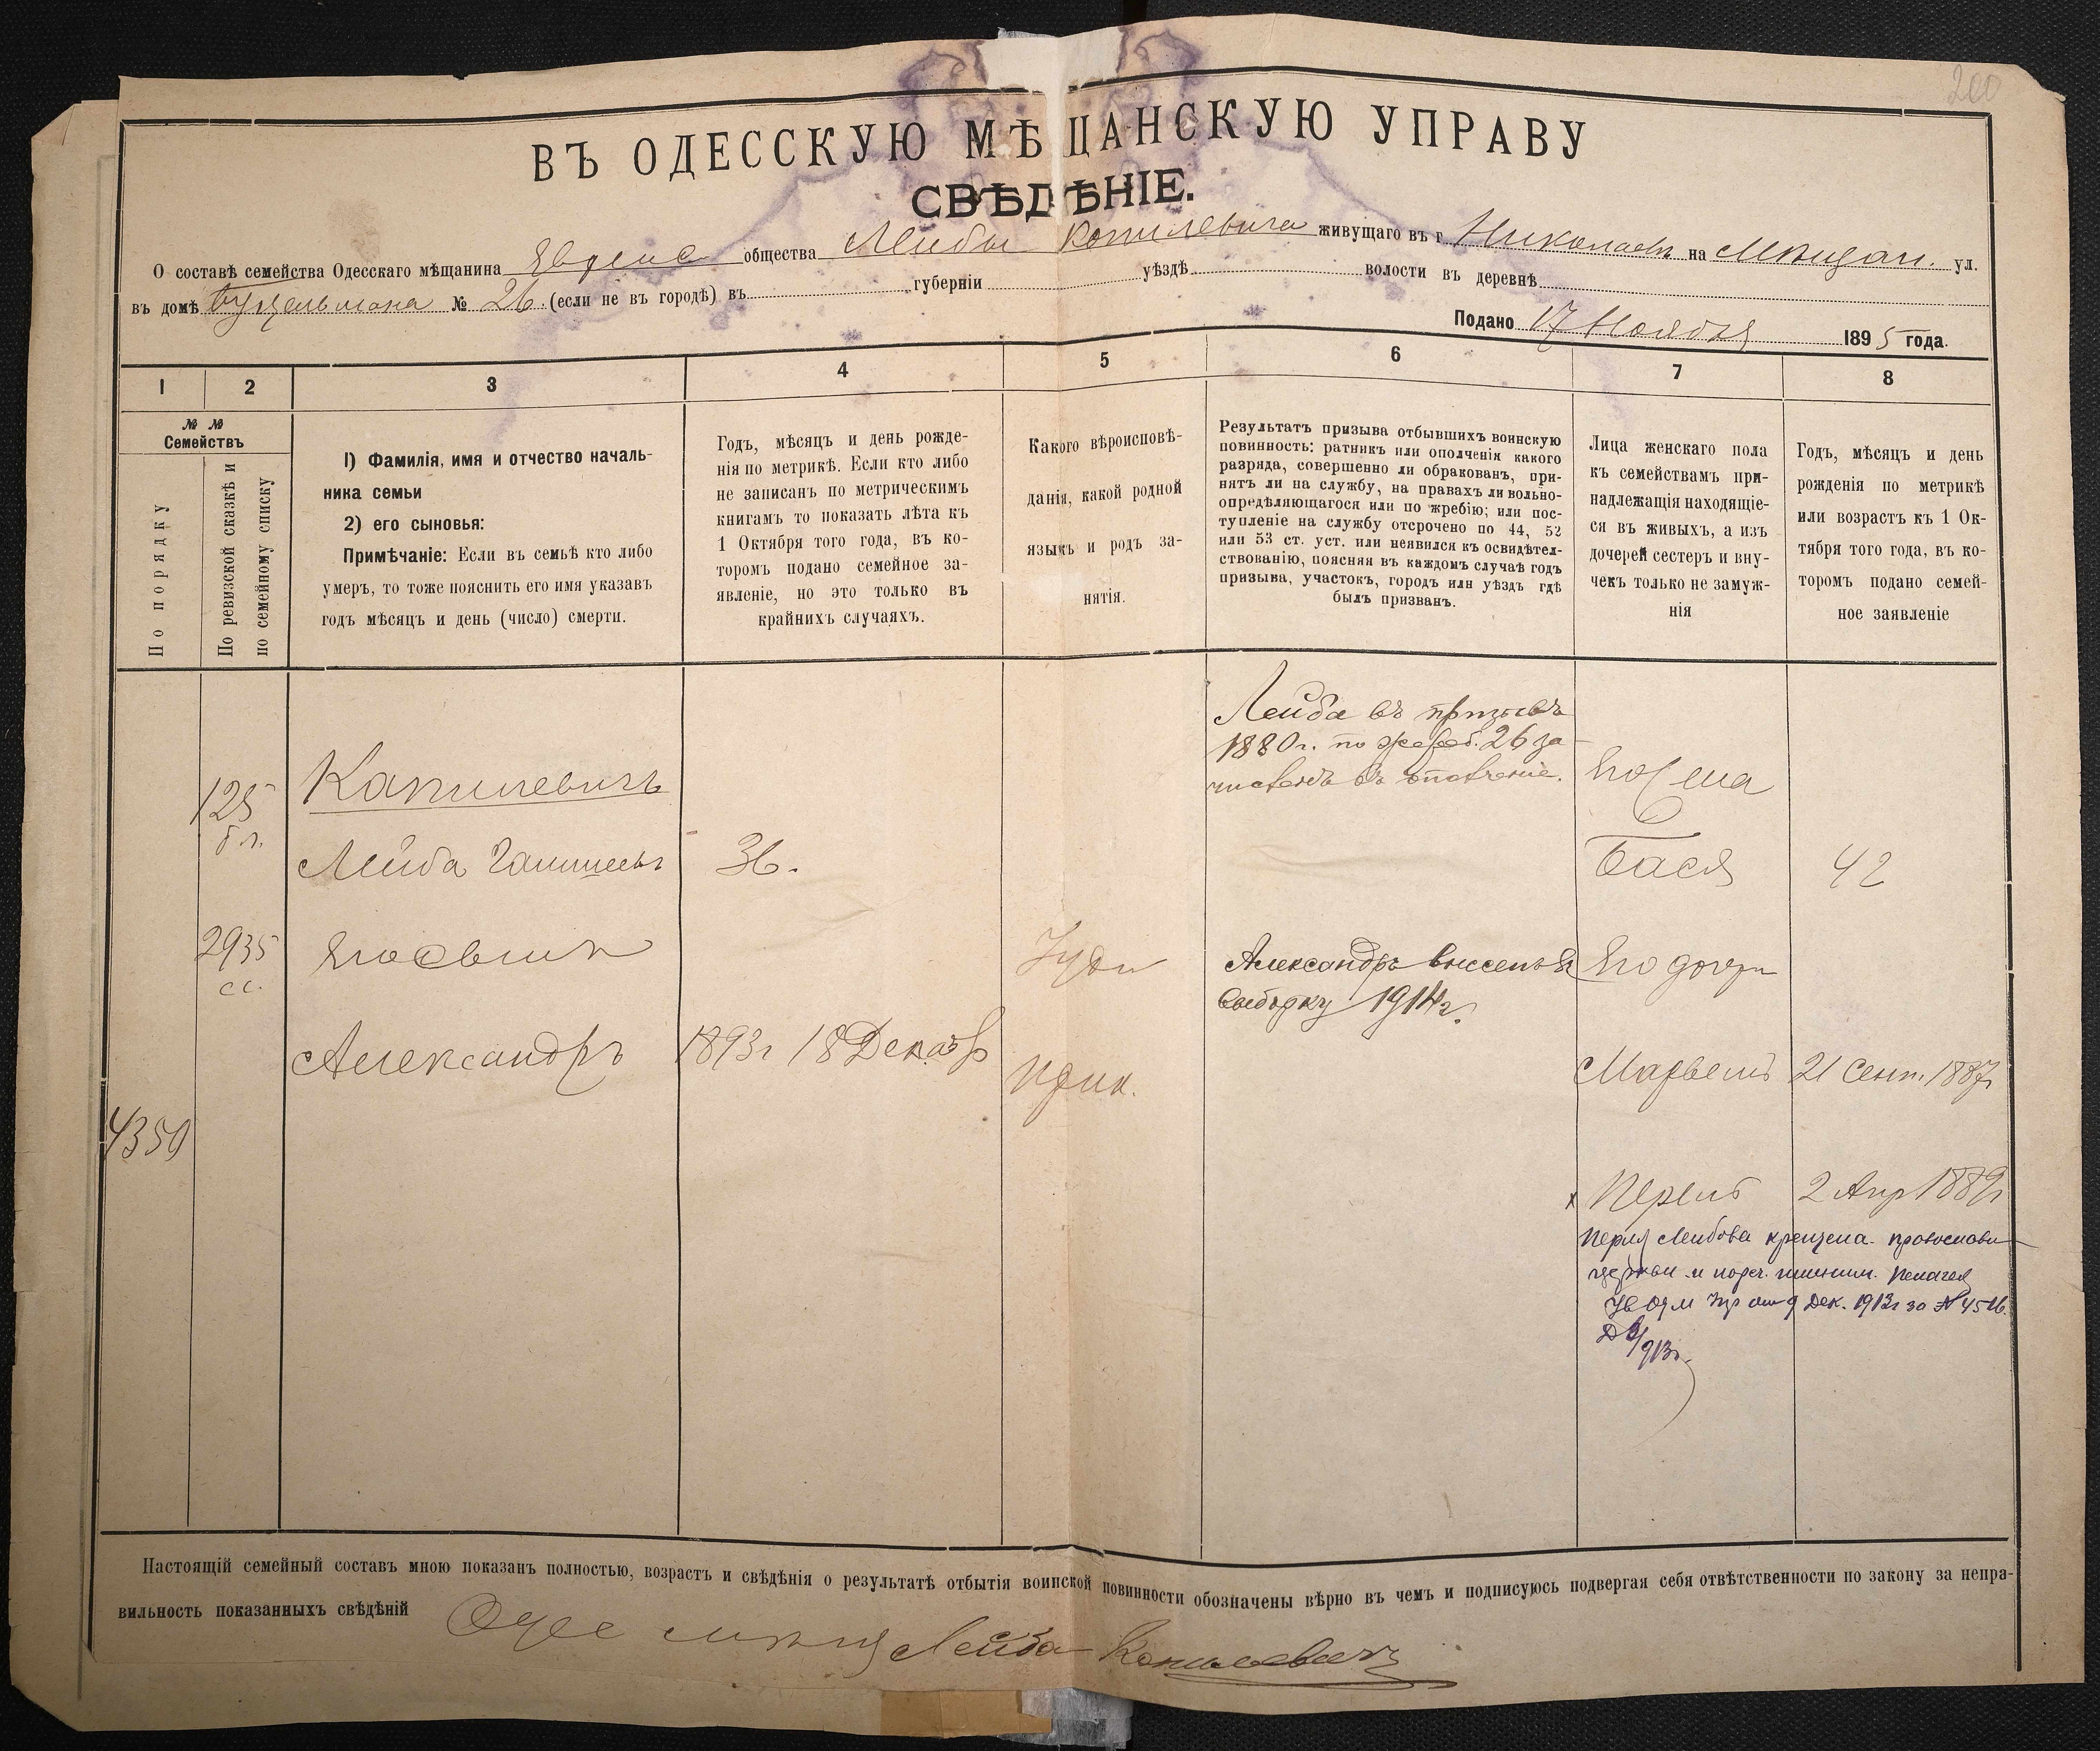 200
ВЪ ОДЕССКУЮ МѢЩАНСКУЮ УПРАВУ
СВѢДѢНІЕ.
О составѣ семейства Одесскаго мѣщанина Еврейс общества Лейбы Копилевича живущаго въ г. Николаевѣ на Мѣщан. ул.
въ домѣ № 26. (если не въ городѣ) въ губерніи уѣздѣ волости въ деревнѣ
Подано 17 Ноября 1895 года.
1 2 3 4 5 6 7 8
№ № Семействъ
По порядку
По ревизской сказкѣ и по семейному списку
1) Фамилія, имя и отчество началь-
ника семьи
2) его сыновья:
Примѣчаніе: Если въ семьѣ кто либо
умеръ, то тоже пояснить его имя указавъ
годъ мѣсяцъ и день (число) смерти.
Годъ, мѣсяцъ и день рожде-
нія по метрикѣ. Если кто либо
не записанъ по метрическимъ
книгамъ то показать лѣта къ
1 Октября того года, въ ко-
торомъ подано семейное за-
явленіе, но это только въ
крайнихъ случаяхъ.
Какого вѣроисповѣ-
данія, какой родной
языкъ и родъ за-
нятія.
Результатъ призыва отбывшихъ воинскую
повинность: ратникъ или ополченія какого
разряда, совершенно ли обракованъ, при-
нятъ ли на службу, на правахъ ли вольно-
опредѣляющагося или по жребію; или пос-
тупленіе на службу отсрочено по 44, 52
или 53 ст. уст. или неявился къ освидѣтел-
ствованію, поясняя въ каждомъ случаѣ годъ
призыва, участокъ, городъ или уѣздъ гдѣ
былъ призванъ.
Лица женскаго пола
къ семействамъ при-
надлежащія находящіе-
ся въ живыхъ, а изъ
дочерей сестеръ и вну-
чекъ только не замуж-
нія
Годъ, мѣсяцъ и день
рожденія по метрикѣ
или возрастъ къ 1 Ок-
тября того года, въ ко-
торомъ подано семей-
ное заявленіе
Лейба въ призывъ
1880г. по жереб. 26 за-
численъ въ ополченіе.
125
Капилевичъ
Его жена
Лейба
36.
Бася
42
2935
сс.
Его сынъ
Іуди
Александръ внесенъ въ
выборку 1914г.
Его дочери
Александръ
1893г 18 Декабр
21 Сент. 1887г
4350
х Перля
2 Апр 1889г
Перля Лейбова крещена
церкви и нареч. именем. Пелагея
9 Дек. 1913г за № 4516.
Настоящій семейный составъ мною показанъ полностью, возрастъ и свѣдѣнія о результатѣ отбытія воинской повинности обозначены вѣрно въ чемъ и подписуюсь подвергая себя отвѣтственности по закону за непра-
вильность показанныхъ свѣдѣній Одес мѣщ Лейба Копилевичъ